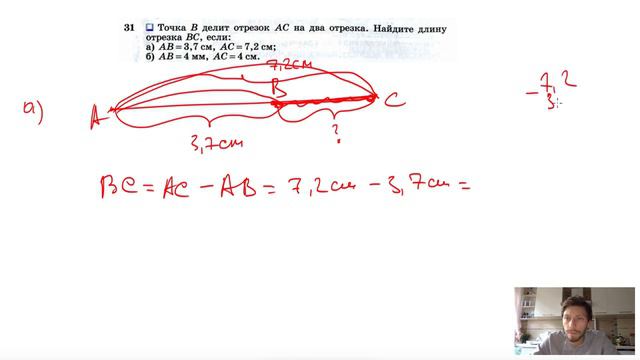 31 Точка B делит отрезок AC на два отрезка. Найдите длину
отрезка BC, если:
а) AB = 3,7 см, AC = 7,2 см;
б) AB = 4 мм, AC = 4 см.
7,2 см
B
а)
A
C
3,7 см
?
BC = AC − AB = 7,2 см − 3,7 см =
− 7,2
3